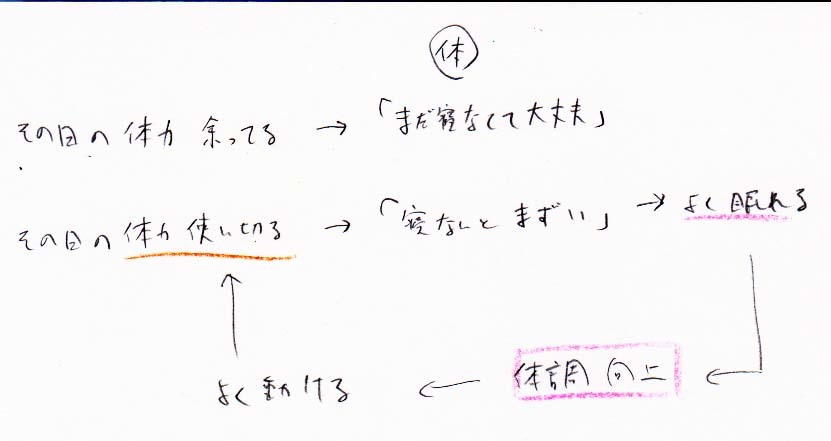 体
その日の体力 余ってる → 「まだ寝なくて大丈夫」
その日の体力 使い切る → 「寝ないとまずい」 → よく眠れる
よく動ける ← 体調向上 ←